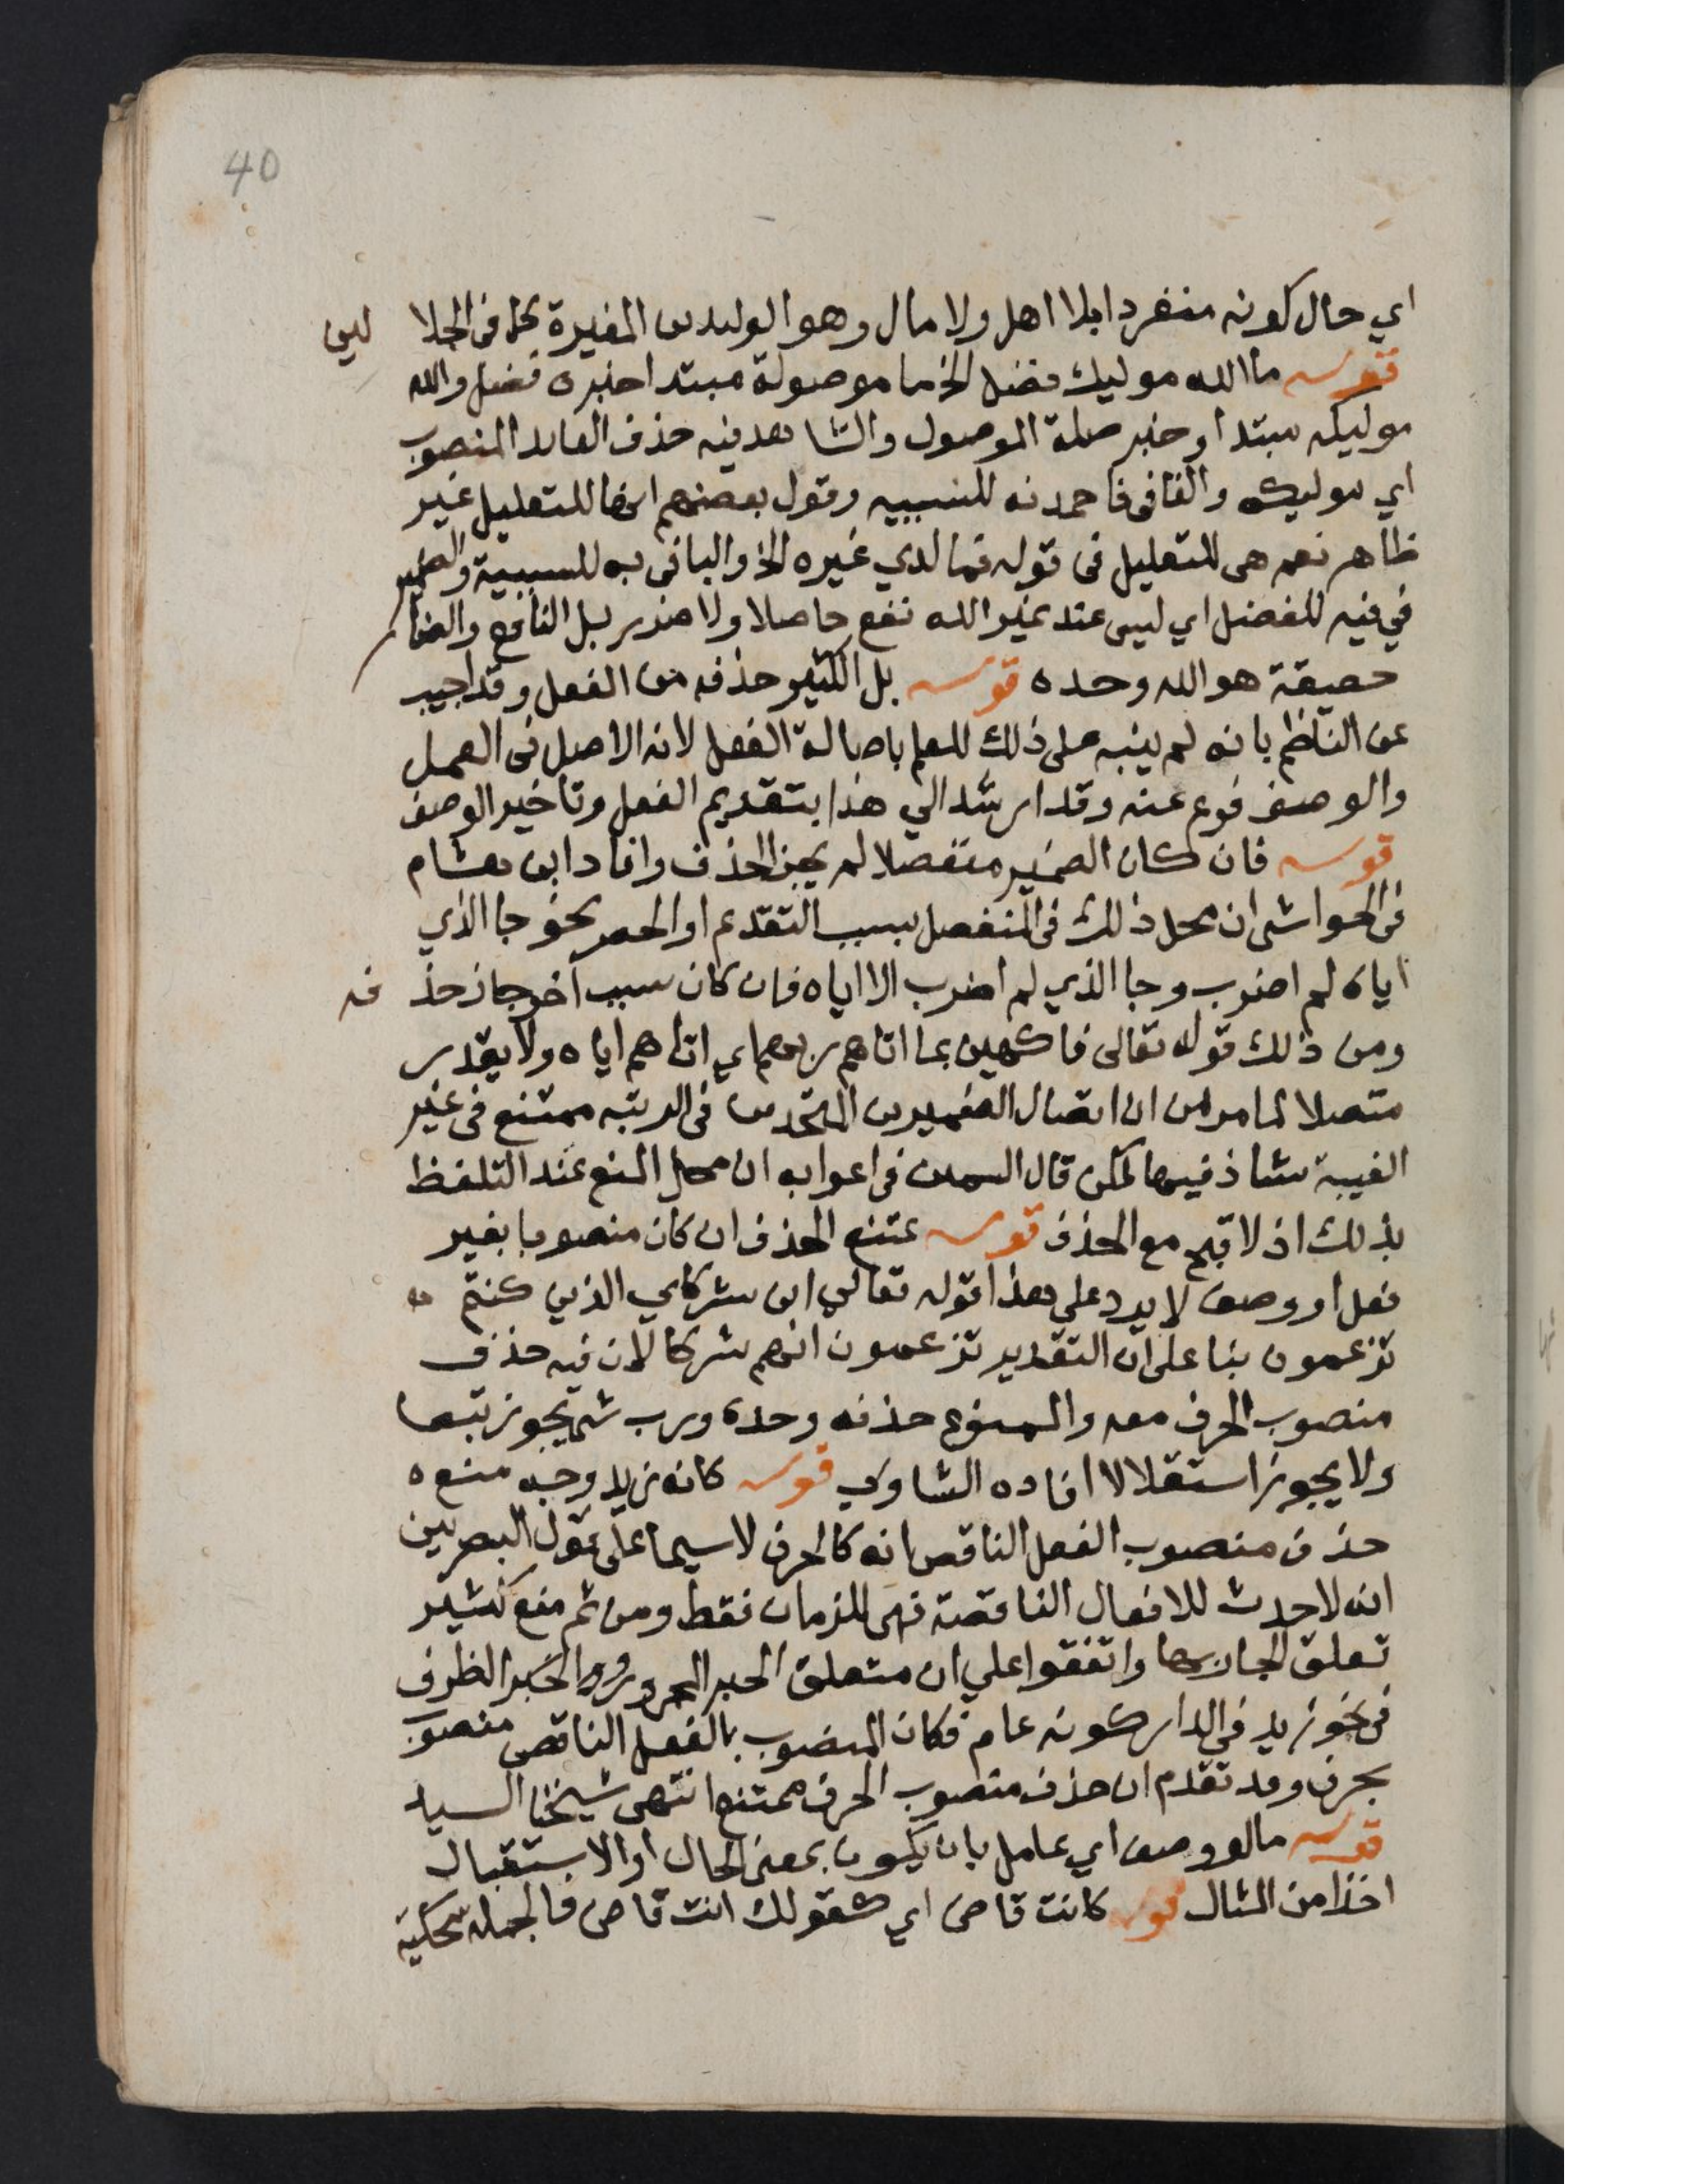 40
اي حال كونه منفردا بلا اهل ولا مال وهو الوليد بن المغيرة كما في الجلا لين
قوله ما الله موليك فضل الخ ما موصولة مبتدا خبره فضل والله
موليكه مبتدا وخبر صلة الموصول والشاهد فيه حذف العايد المنصوب
اي موليكه والفا في فاحمدنه للسببيه وقول بعضهم انها للتعليل غير
ظاهر نعم هي للتعليل في قوله فما لدي غيره الخ والبا في به للسببية والضمير
في فيه للفضل اي ليس عند غير الله نفع حاصلا ولا ضرر بل النافع والضار
حقيقة هو الله وحده قوله بل الكثير حذفه من الفعل وقد اجيب
عن الناظم بانه لم ينبه على ذلك للعلم باصالة الفعل لانه الاصل في العمل
والوصف فرع عنه وقد ارشد الي هذا بتقديم الفعل وتاخير الوصف
قوله فان كان الضمير منفصلا لم يجز الحذف وافاد ابن هشام
في الحواشي ان محل ذلك في المنفصل بسبب التقدم او الحصر نحو جا الذي
اياه لم اضرب وجا الذي لم اضرب الا اياه فان كان سبب آخر جاز حذ فه
ومن ذلك قوله تعالى فاكهين بما اتاهم ربهم اي اتاهم اياه ولا يقدر
متصلا لما مر من ان اتصال الضميرين المتحدين في الرتبه ممتنع في غير
الغيبة شاذ فيها لكن قال السمين في اعرابه ان محل المنع عند التلفظ
بذلك اذ لا قبح مع الحذف قوله يمتنع الحذف ان كان منصوبا بغير
فعل او وصف لا يرد على هذا قوله تعالي اين شركاي الذين كنتم
تزعمون بنا على ان التقدير تزعمون انهم شركا لان فيه حذف
منصوب الحرف معه والممنوع حذفه وحده ورب شي يجوز تبعا
ولا يجوز استقلالا افاده الشاوي قوله كانه زيد وجه منعه
حذف منصوب الفعل الناقص انه كالحرف لا سيما على قول البصريين
انه لا حدث للافعال الناقصة فهي للزمان فقط ومن ثم منع كثير
تعلق الجار بها واتفقوا علي ان متعلق الخبر المجرور والخبر الظرف
في نحو زيد في الدار كونه عام فكان المنصوب بالفعل الناقص منصوب
بحرف وقد تقدم ان حذف منصوب الحرف ممتنع انتهى شيخنا السيد
قوله مالو وصف اي عامل بان يكون بمعنى الحال او الاستقبال
اخذا من المثال قوله كانت قاض اي كقولك انت قاض فالجمله محكية